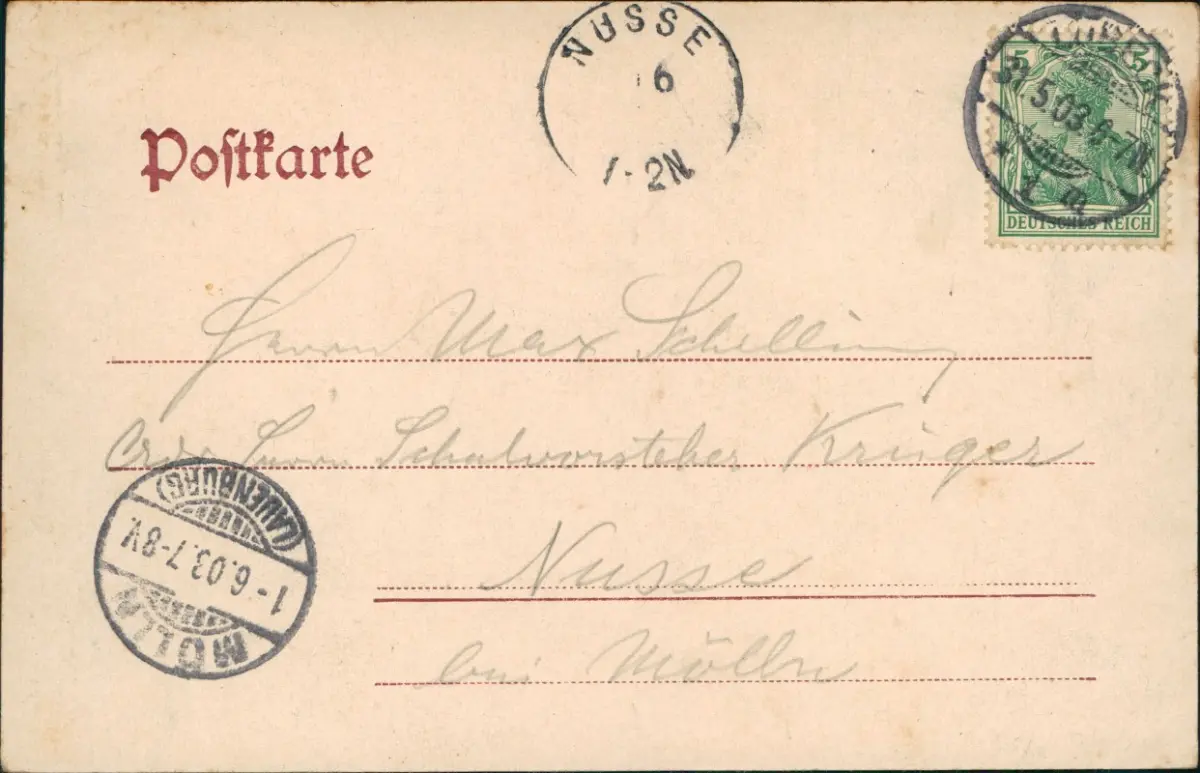 NUSSE
6
1-2N
Postkarte
5 5
LÜBECK
31.5.03.6-7N.
* 1 m
DEUTSCHES REICH
Herrn Max Schelling
Herrn Schulvorsteher Krüger
Nusse
bei Mölln
MÖLLN
1-6.03.7-8V.
(LAUENBURG)